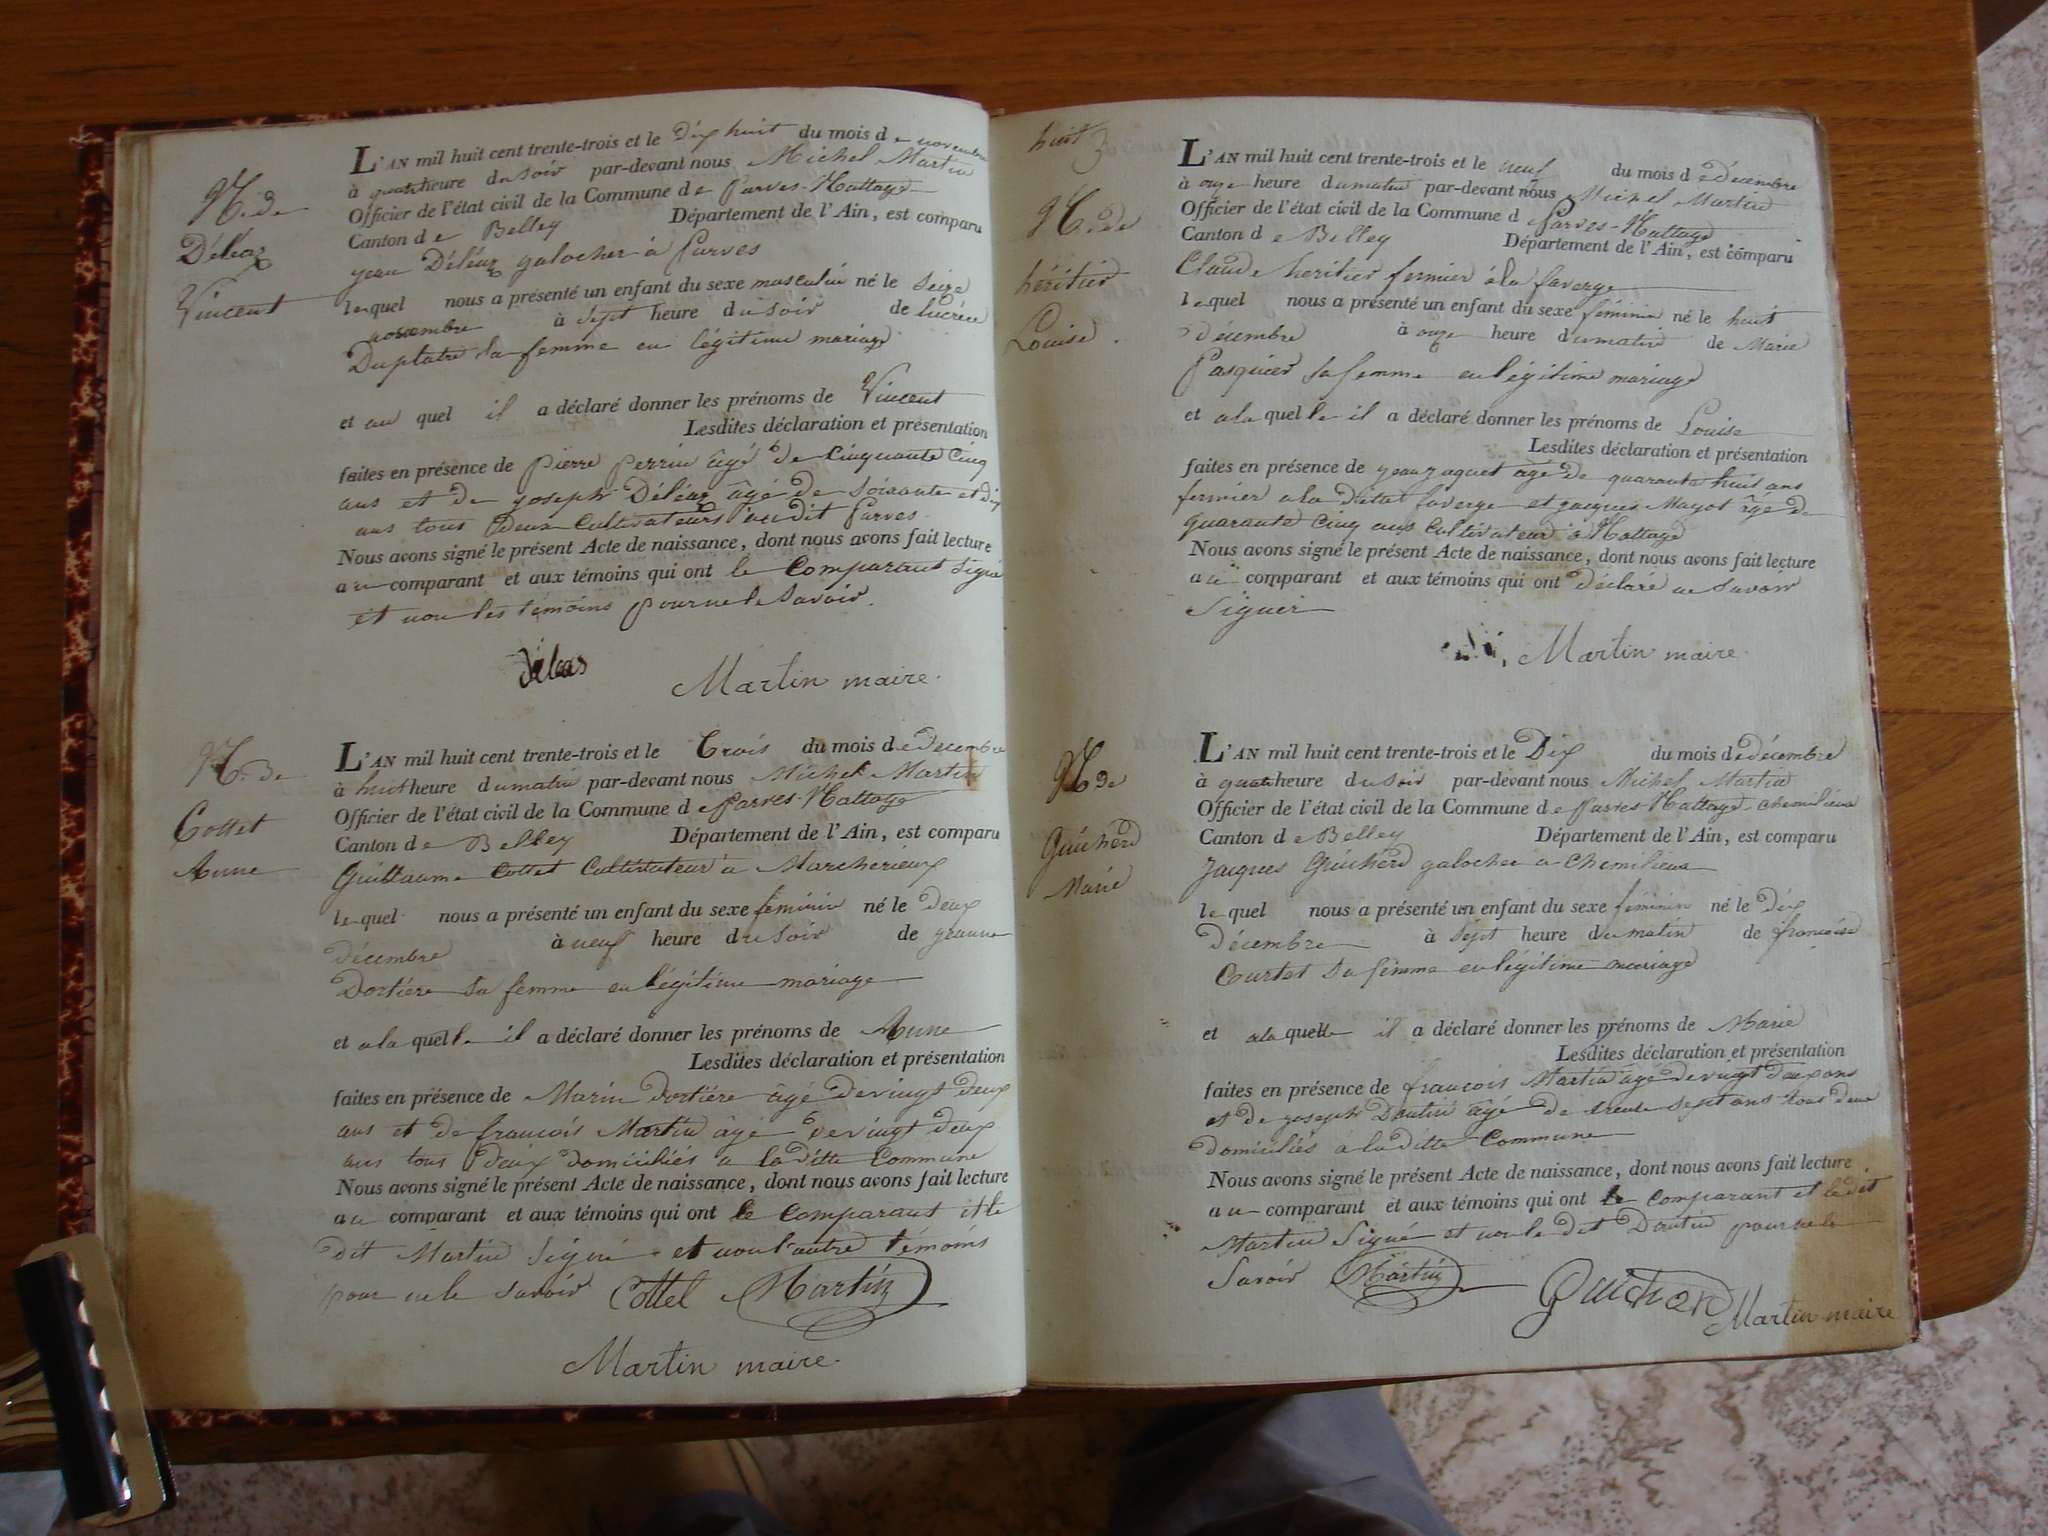 N. de
Déléaz
Vincent
L'AN mil huit cent trente-trois et le Dix huit du mois de novembre
à quatre heure du soir par-devant nous Michel Martin
Officier de l'état civil de la Commune de Parves-Nattage
Canton de Belley Département de l'Ain, est comparu
jean Déléaz galocher à Parves
lequel nous a présenté un enfant du sexe masculin né le seize
novembre à sept heure du soir de lucrèce
Duplatre sa femme en légitime mariage
et au quel il a déclaré donner les prénoms de Vincent
Lesdites déclaration et présentation
faites en présence de pierre perrin âgé de Cinquante Cinq
ans et de joseph Déléaz âgé de soixante et dix
ans tous deux Cultivateurs au dit Parves
Nous avons signé le présent Acte de naissance, dont nous avons fait lecture
au comparant et aux témoins qui ont le Comparant signé
et non les témoins pour ne le savoir.
Martin maire.
N. de
Cottet
Anne
L'AN mil huit cent trente-trois et le Trois du mois de decembre
à huit heure du matin par-devant nous Michel Martin
Officier de l'état civil de la Commune de Parves-Nattage
Canton de Belley Département de l'Ain, est comparu
Guillaume Cottet Cultivateur à Marcherieux
lequel nous a présenté un enfant du sexe féminin né le deux
décembre à neuf heure du soir de jeanne
Dortière sa femme en légitime mariage
et a la quelle il a déclaré donner les prénoms de Anne
Lesdites déclaration et présentation
faites en présence de Marin Dortière âgé de vingt deux
ans et de francois Martin âgé de vingt deux
ans tous deux domiciliés a la ditte Commune
Nous avons signé le présent Acte de naissance, dont nous avons fait lecture
au comparant et aux témoins qui ont le comparant et le
dit Martin signé et non l'autre témoins
pour ne le savoir Cottet Martin
Martin maire.
huit
N. de
héritier
Louise
L'AN mil huit cent trente-trois et le neuf du mois de décembre
à onze heure du matin par-devant nous Michel Martin
Officier de l'état civil de la Commune d Parves-Nattage
Canton de Belley Département de l'Ain, est comparu
Claude heritier fermier à la faverge
lequel nous a présenté un enfant du sexe féminin né le huit
décembre à onze heure du matin de Marie
Pasquier sa femme en légitime mariage
et a la quelle il a déclaré donner les prénoms de Louise
Lesdites déclaration et présentation
faites en présence de jean jaquet âgé de quarante huit ans
fermier a la faverge et jacques Mayot âgé de
quarante Cinq ans Cultivateur à Nattage
Nous avons signé le présent Acte de naissance, dont nous avons fait lecture
au comparant et aux témoins qui ont déclaré ne savoir
signer
Martin maire.
N. de
Guicherd
Marie
L'AN mil huit cent trente-trois et le Dix du mois de décembre
à quatre heure du soir par-devant nous Michel Martin
Officier de l'état civil de la Commune de Parves-Nattage Chemilieux
Canton de Belley Département de l'Ain, est comparu
Jacques Guicherd galocher a Chemilieux
lequel nous a présenté un enfant du sexe féminin né le dix
décembre à sept heure du matin de francoise
Courtet sa femme en légitime mariage
et a la quelle il a déclaré donner les prénoms de Marie
Lesdites déclaration et présentation
faites en présence de francois Martin âgé de vingt deux ans
et de joseph Dantin âgé de trente sept ans tous deux
domiciliés à la ditte Commune
Nous avons signé le présent Acte de naissance, dont nous avons fait lecture
au comparant et aux témoins qui ont le comparant et le dit
Martin Signé et non le dit Dantin pour ne le
savoir Martin
Martin maire